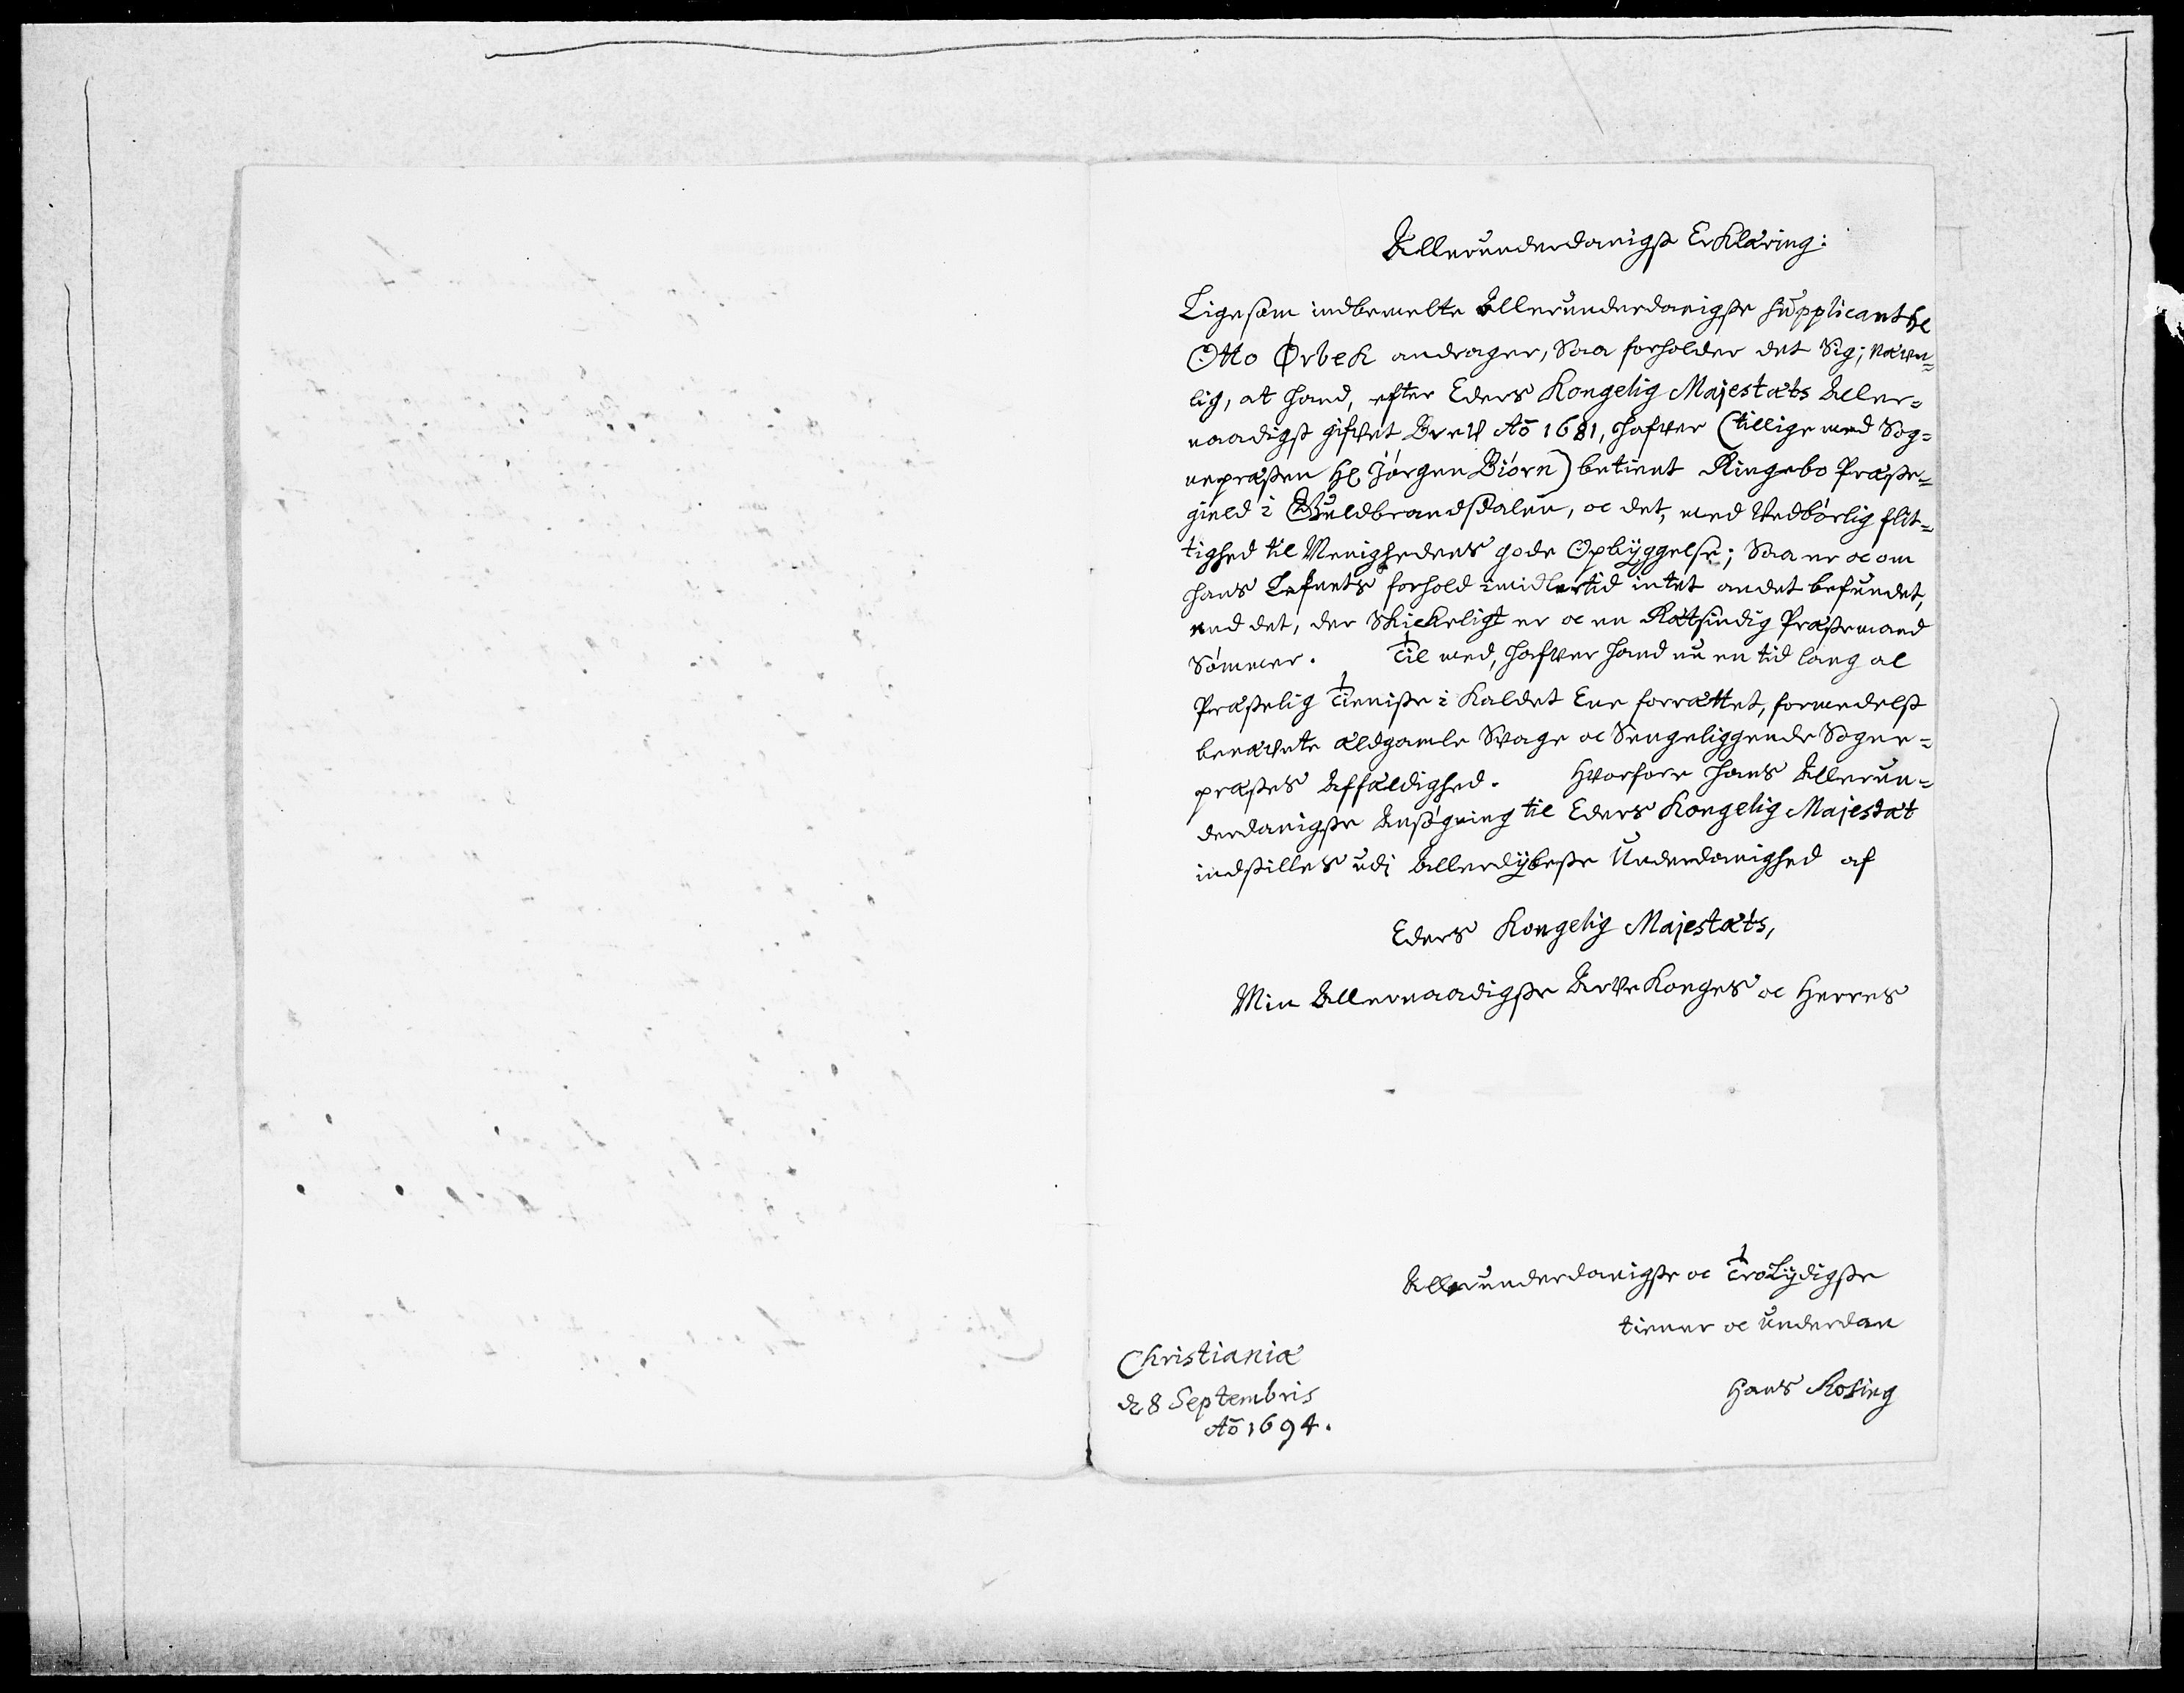 Allerunderdanigst Erklæring:
Ligesom indbemelte Allerunderdanigste supplicant Hr
Otto Ørbek andrager, Saa forholder det Sig; næfn-
lig, at hand, efter Eders Kongelig Majestæts Aller-
naadigst gifvet Brev Aō 1681, hafver (tillige med Sog-
nepræsten Hr Jørgen Biørn) betient Ringebo Præste-
gield i Guldbrandsdalen, oc det, med Vedbørlig flit-
tighed til Menighedens gode Opbyggelse; Saa er oc om
hans Lefnets forhold imidlertid intet andet befundet,
end det, der Skickeligt er oc en Rætsindig Præstemand
Sømmer. Til med, hafver hand nu en tid lang al
Præstelig Tieniste i Kaldet Ene forrættet, formedelst
benævnte ældgamle Svage oc Sengeliggende Sogne-
præstes Affældighed. Hvorfore hans Allerun-
derdanigste Ansøgning til Eders Kongelig Majestæt
indstilles udj Allerdybeste Underdanighed af
Eders Kongelig Majestæts,
Min Allernaadigste Arve Konges oc Herres
Allerunderdanigste oc Tro Lydigste
tiener oc Underdan
Christianiæ
d 8 Septembris
Aō 1694.
Hans Rosing